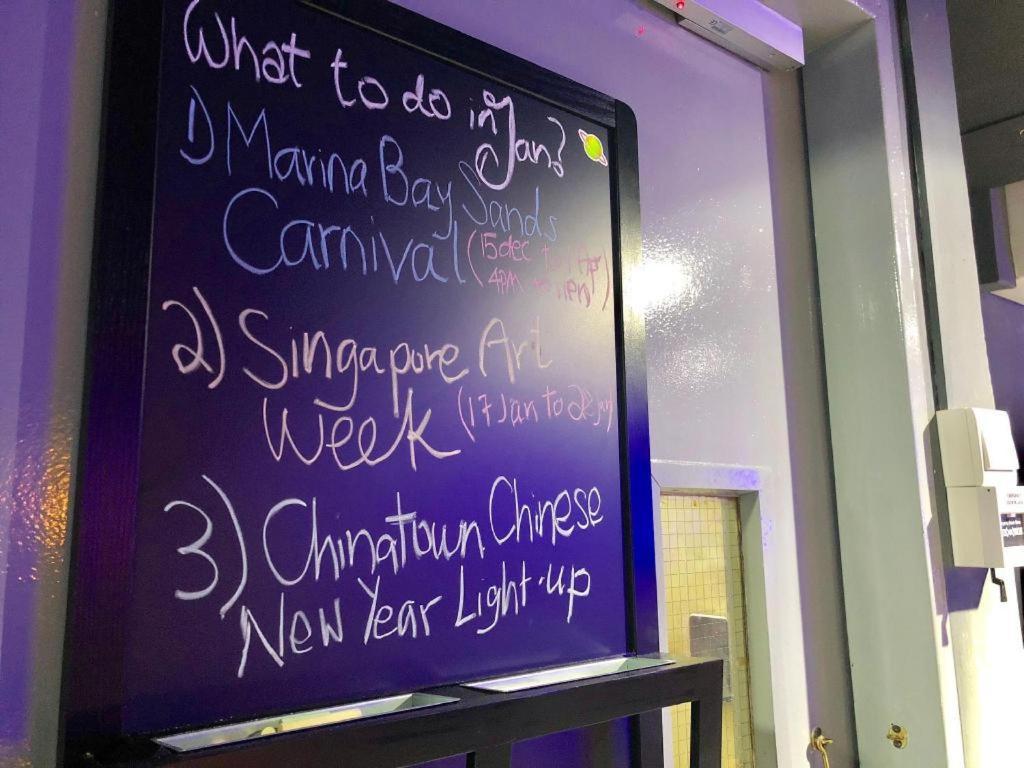 What to do in Jan?
1) Marina Bay Sands
Carnival (15 dec to
4PM to
2) Singapore Art
Week (17 Jan to 26 Jan)
3) Chinatown Chinese
New Year Light-up